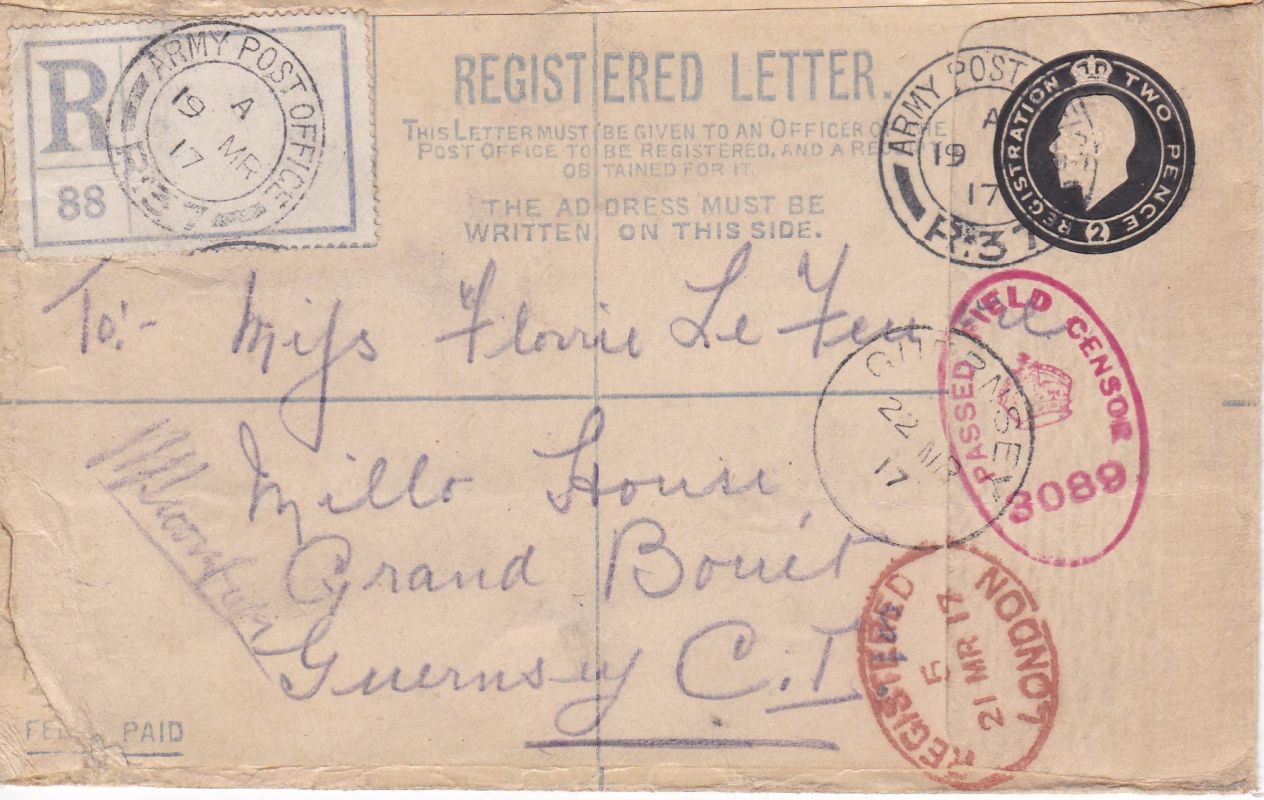 R
88
ARMY POST OFFICE
A
19 MR
17
R.37
REGISTERED LETTER.
THIS LETTER MUST BE GIVEN TO AN OFFICER OF THE
POST OFFICE TO BE REGISTERED, AND A RECEIPT
OBTAINED FOR IT.
THE ADDRESS MUST BE
WRITTEN ON THIS SIDE.
ARMY POST
A
19
17
R.37
REGISTRATION TWO PENCE
2
To:- Miss Florrie Le Feuvre
Millo House,
Grand Bouet
Guernsey C.I.
PASSED FIELD CENSOR
3089
GUERNSEY
22 MR
17
REGISTERED LONDON
5
21 MR 17
FEE PAID